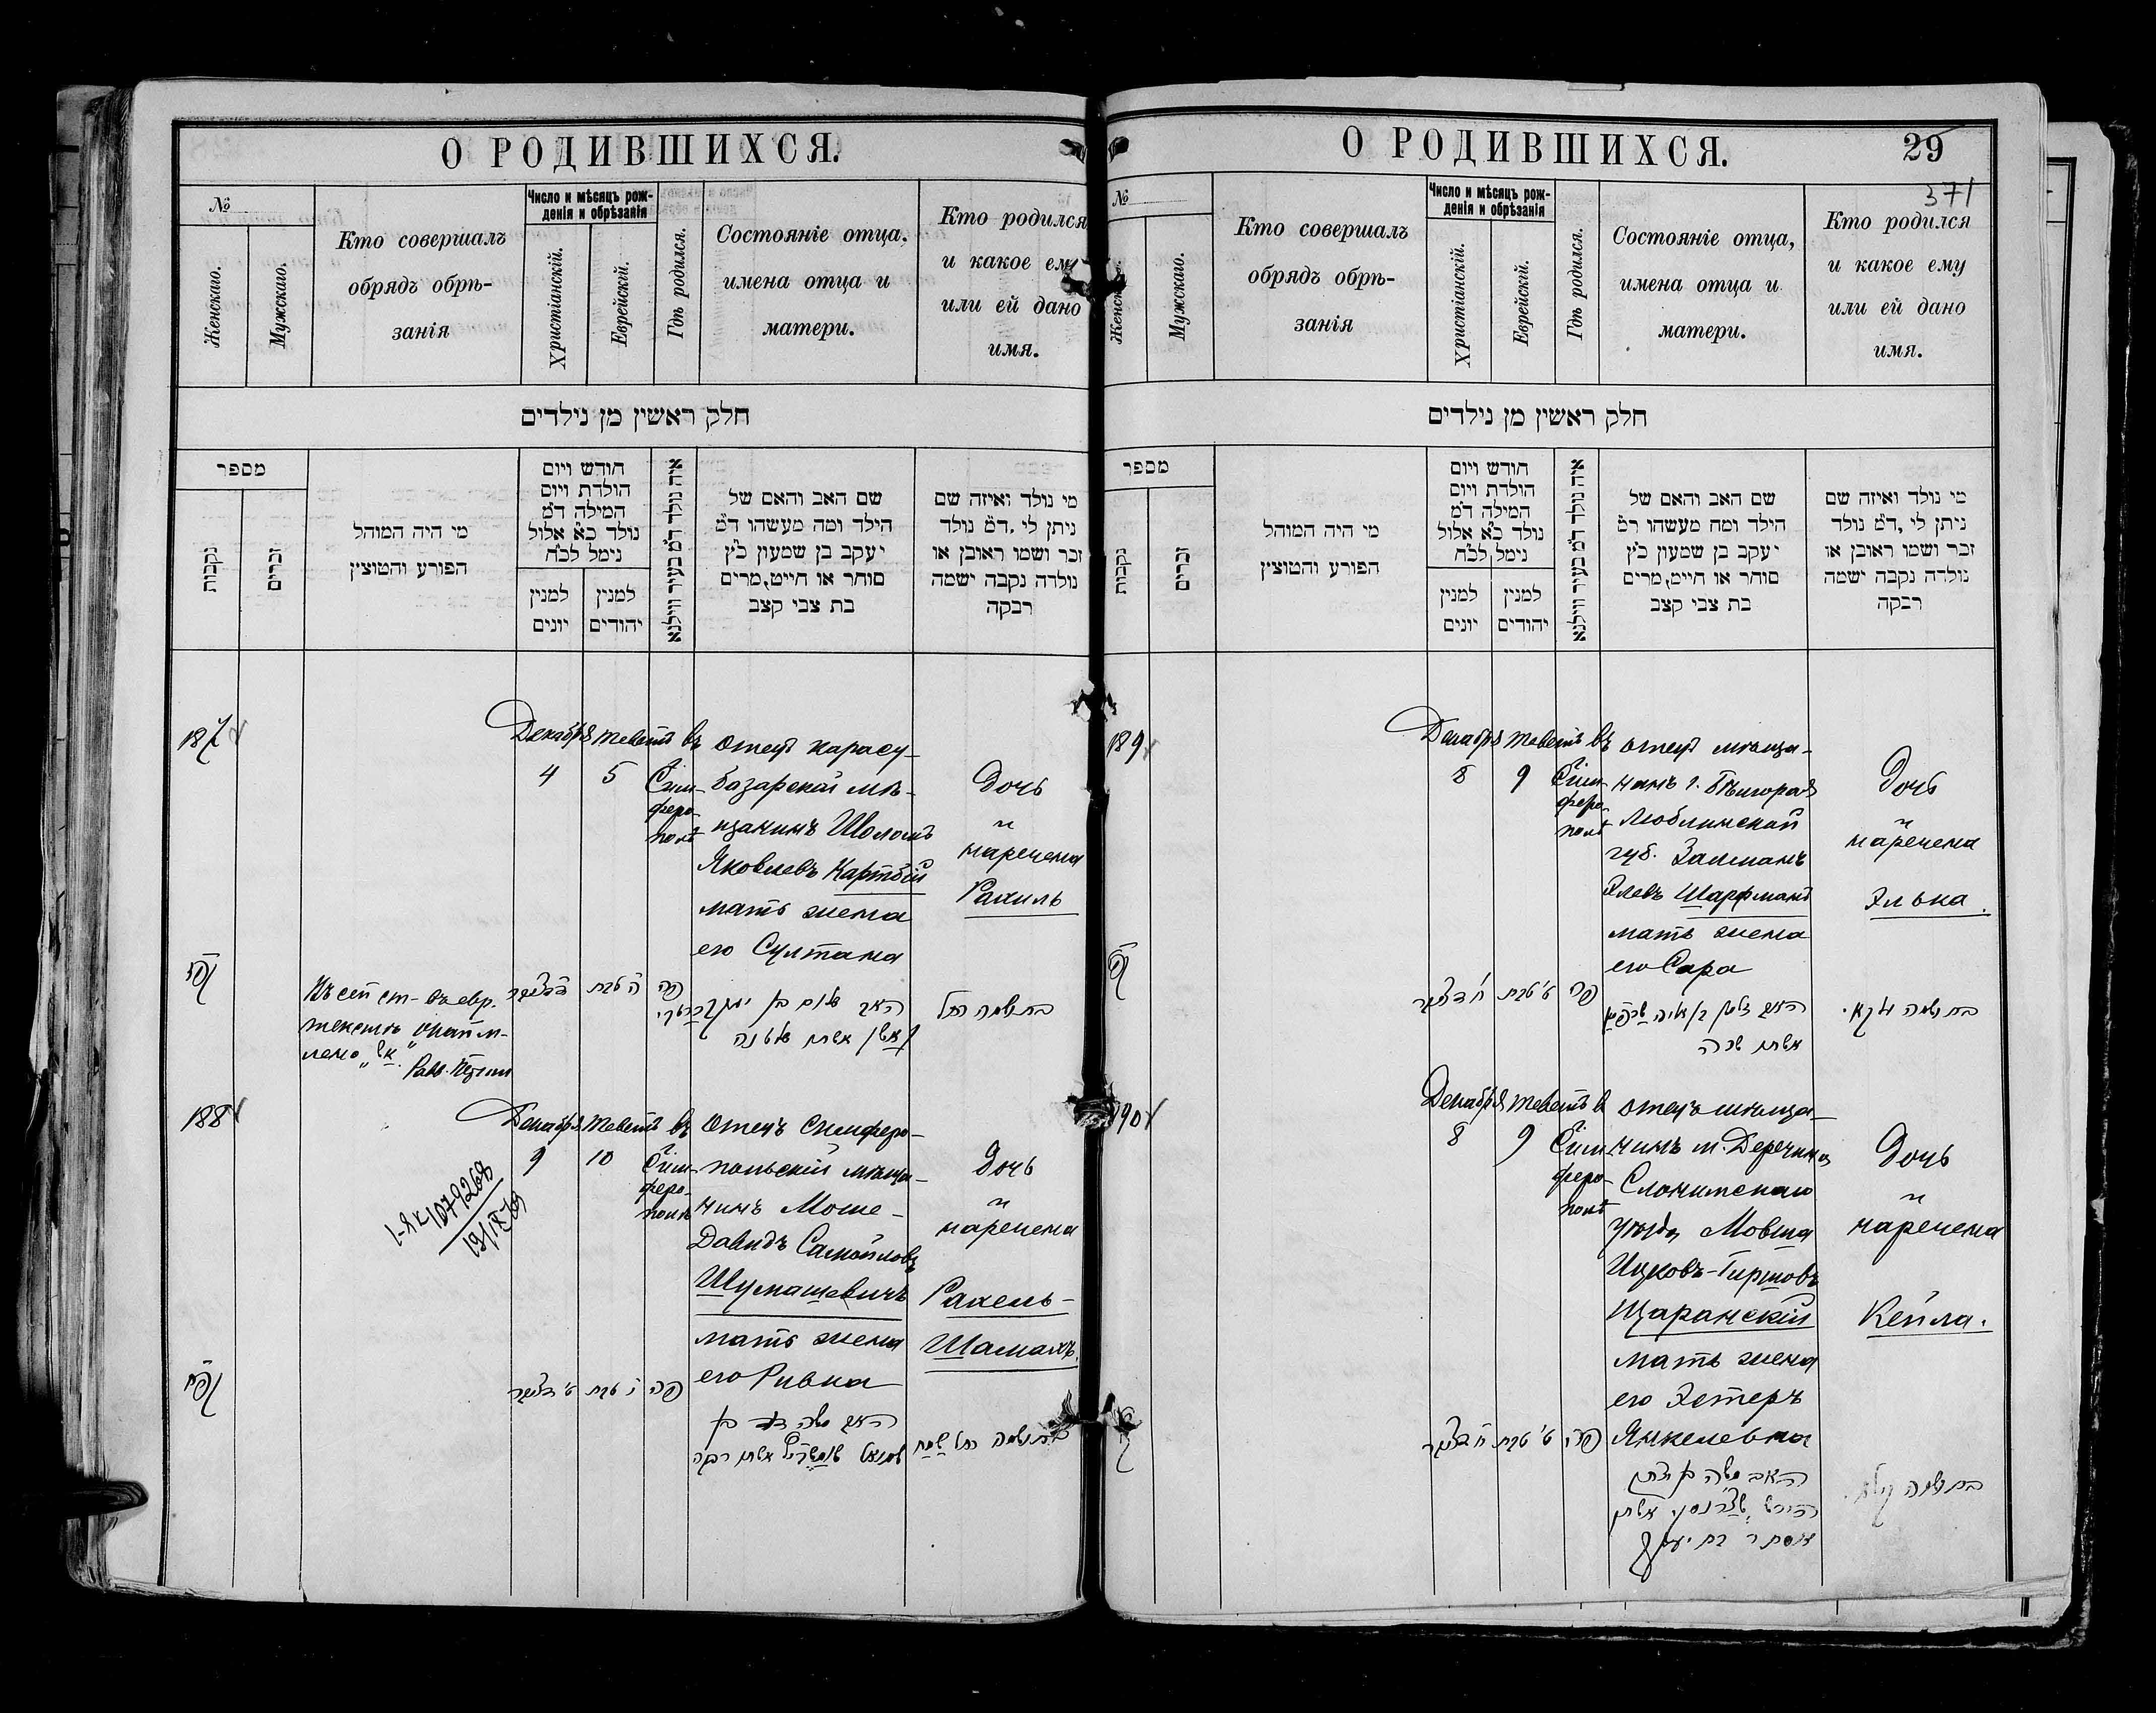 О РОДИВШИХСЯ.
№
Женскаго.
Мужскаго.
Кто совершалъ
обрядъ обрѣ-
занія
Число и мѣсяцъ рож-
денія и обрѣзанія
Христіанскій.
Еврейскій.
Гдѣ родился.
Состояніе отца,
имена отца и
матери.
Кто родился
и какое ему
или ей дано
имя.
חלק ראשין מן נילדים
מספר
נקבות
זכרים
מי היה המוהל
הפורע והטוצץ
חודש ויום
הולדת ויום
המילה ד״מ
נולד כ״א אלול
נימל לכ״ח
למנין
יונים
למנין
יהודים
איה נולד ד״מ בעיר ווילנא
שם האב והאם של
הילד ומה מעשהו ד״מ
יעקב בן שמעון כ״ץ
סוחר או חייט,מרים
בת צבי קצב
מי נולד ואיזה שם
ניתן לי ,ד״מ נולד
זכר ושמו ראובן או
נולדה נקבה ישמה
רבקה
187
Декабря Теветъ въ
4 5 Сим-
феро-
полѣ
Отецъ карасу-
базарскій мѣ-
щанинъ Шоломъ
Яковлевъ
мать жена
его Султана
Дочь
и
наречена
Рахиль
פה
ה טבת
האב שלום בן יעקב
בת ושמה רחל
188
Декабря Теветъ въ
9 10 Сим-
феро-
полѣ
Отецъ Симферо-
польскій мѣща-
нинъ Моше-
Давидъ Самойловъ
Шумашевичъ
мать жена
его Ривка
Дочь
и
наречена
Рахель-
Шамахъ.
1-ЯК 1079268
פה
י טבת
האב משה דוד בן
שמואל
אשתו רבקה
בת ושמה רחל
О РОДИВШИХСЯ.
29
371
№
Женскаго.
Мужскаго.
Кто совершалъ
обрядъ обрѣ-
занія
Число и мѣсяцъ рож-
денія и обрѣзанія
Христіанскій.
Еврейскій.
Гдѣ родился.
Состояніе отца,
имена отца и
матери.
Кто родился
и какое ему
или ей дано
имя.
חלק ראשין מן נילדים
מספר
נקבות
זכרים
מי היה המוהל
הפורע והטוצץ
חודש ויום
הולדת ויום
המילה ד״מ
נולד כ״א אלול
נימל לכ״ח
למנין
יונים
למנין
יהודים
איה נולד ד״מ בעיר ווילנא
שם האב והאם של
הילד ומה מעשהו ד״מ
יעקב בן שמעון כ״ץ
סוחר או חייט,מרים
בת צבי קצב
מי נולד ואיזה שם
ניתן לי ,ד״מ נולד
זכר ושמו ראובן או
נולדה נקבה ישמה
רבקה
189
Декабря Теветъ въ
8 9 Сим-
феро-
полѣ
Отецъ мѣща-
нинъ г.
Люблинской
губ. Залманъ
Элевъ Шарфманъ
мать жена
его Сара
Дочь
и
наречена
Элька.
פה
ט׳ טבת
אשתו שרה
בת ושמה
190
Декабря Теветъ въ
8 9 Сим-
феро-
полѣ
Отецъ мѣща-
нинъ м. Деречина
Слонимскаго
уѣзда Мовша
Ицковъ-Гиршовъ
Щаранскій
мать жена
его Эстеръ
Янкелевна
Дочь
и
наречена
Кейла.
פה
ט׳ טבת
האב משה בן יצחק
אשתו
אסתר בת יעקב
בת ושמה קילא